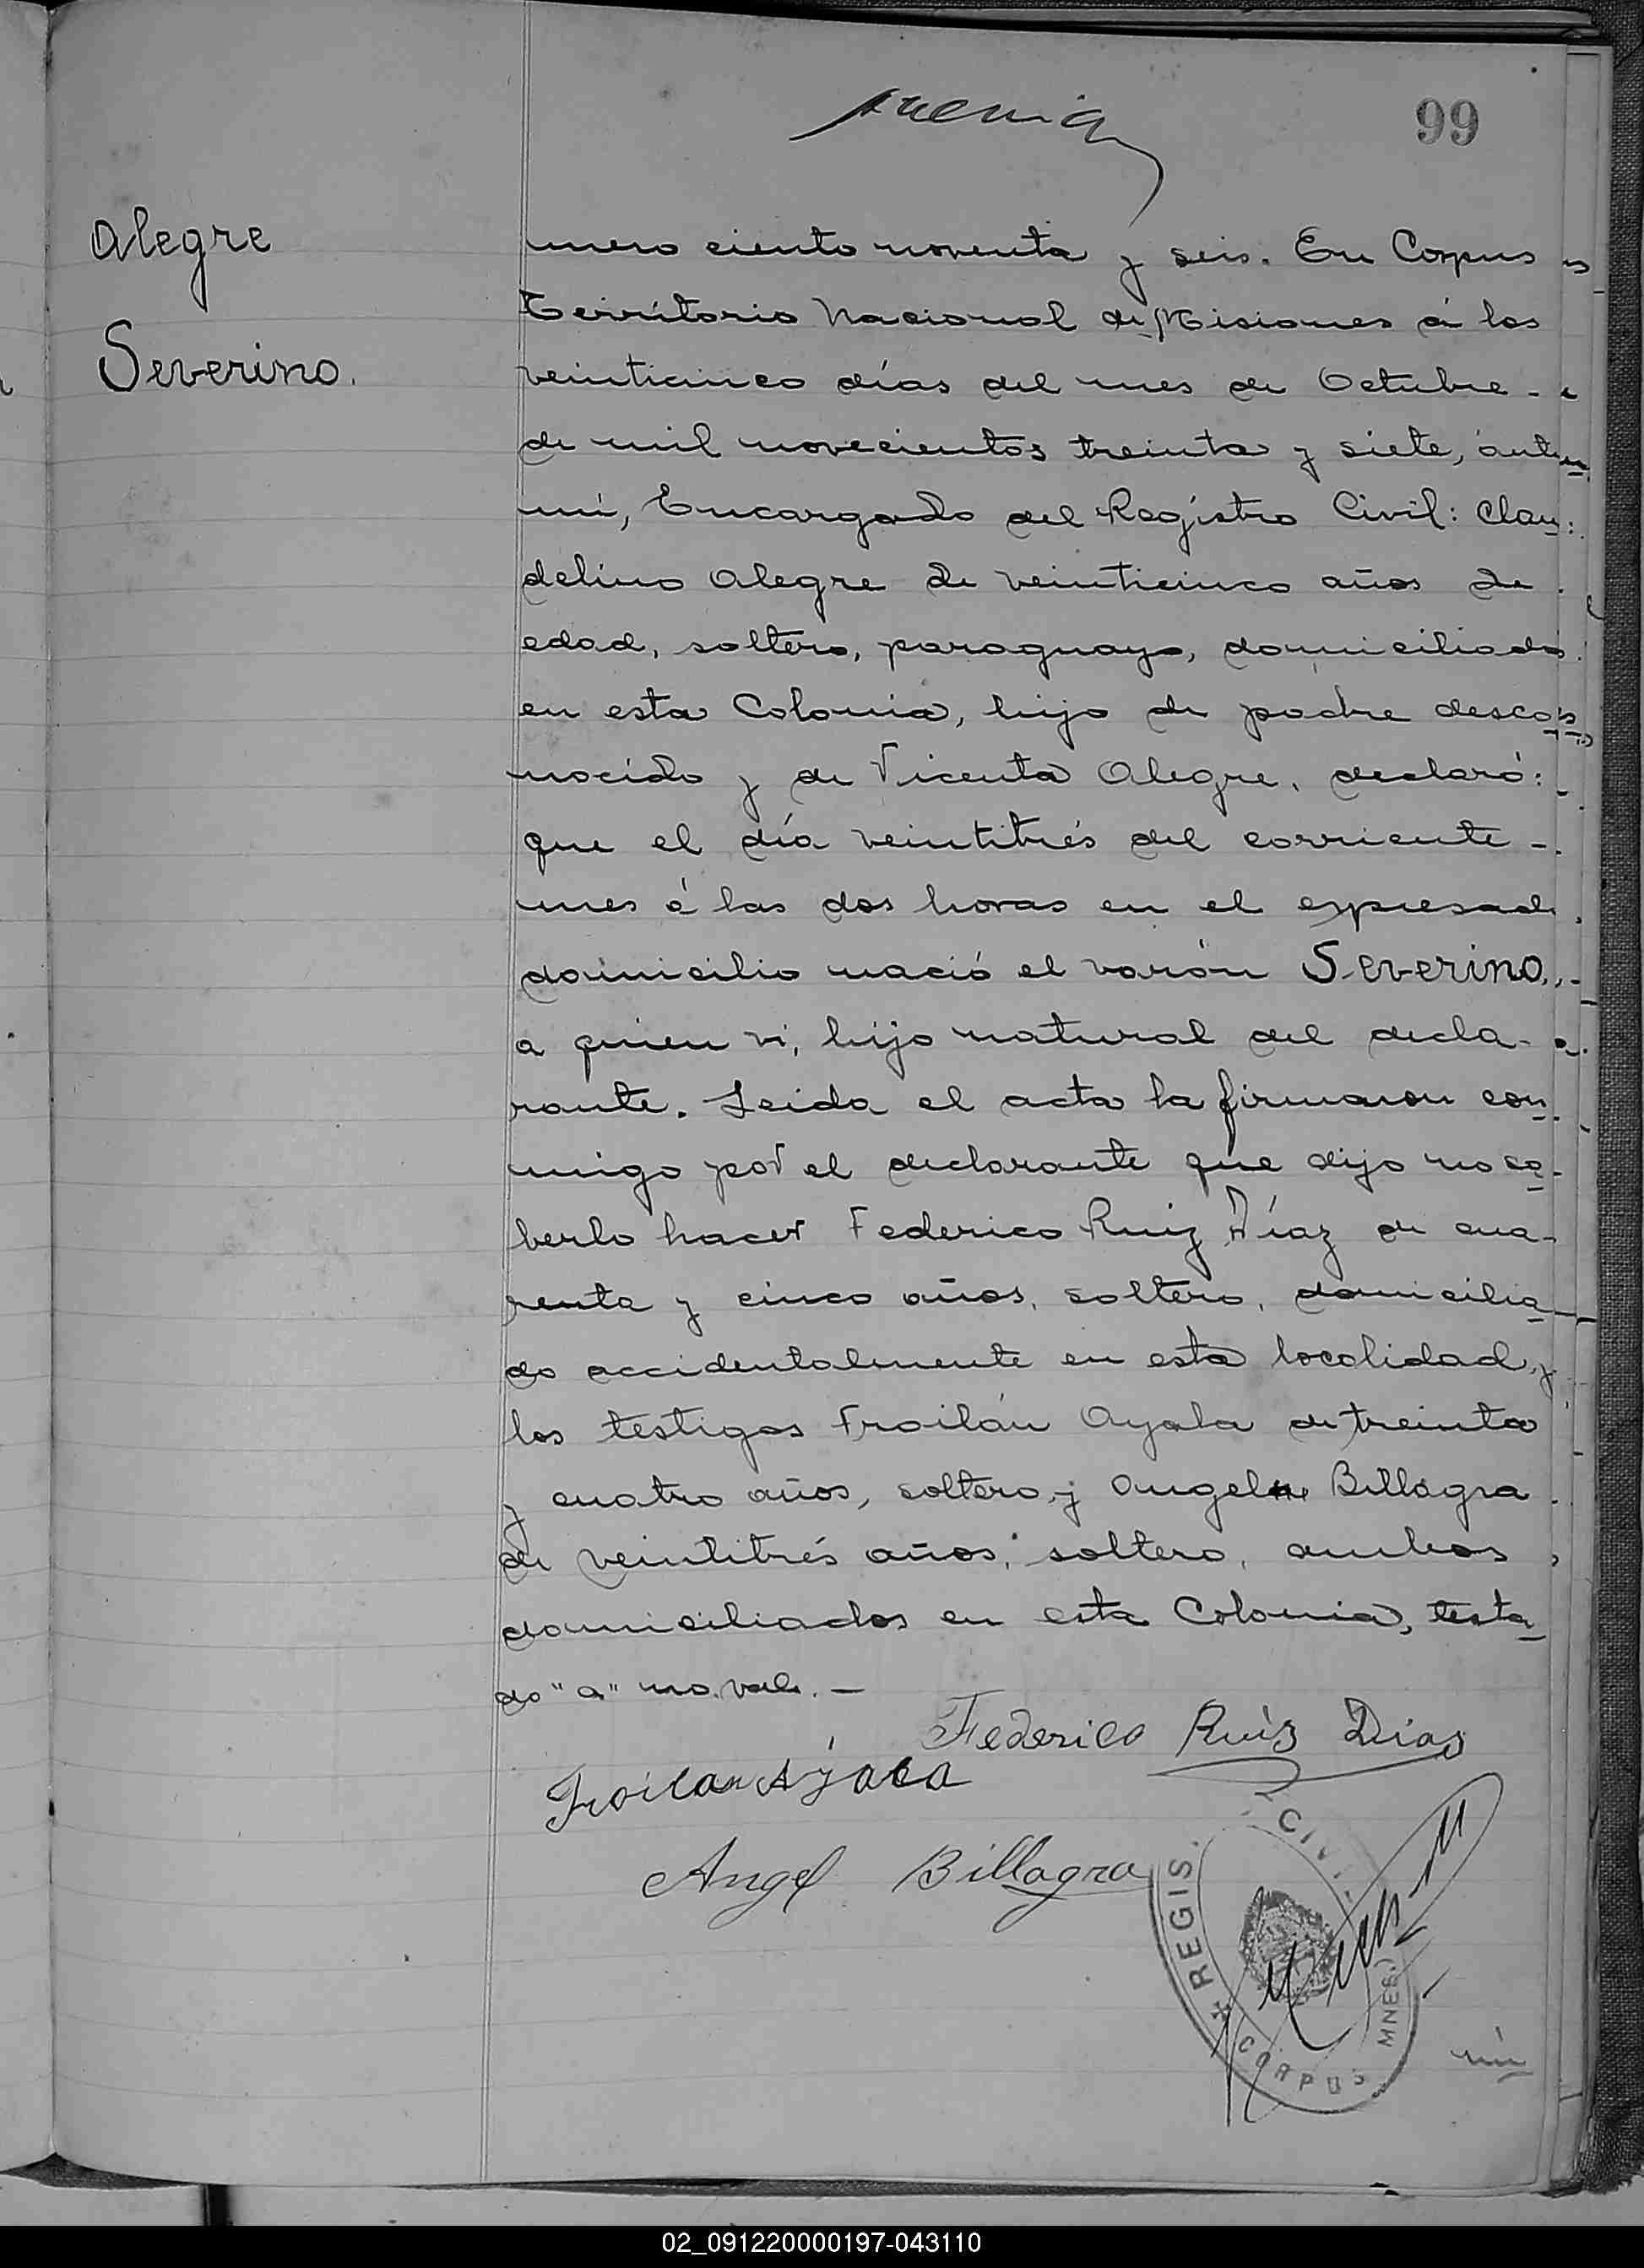 99
Alegre
Severino.
mero ciento noventa y seis. En Corpus
Territorio Nacional de Misiones á los
veinticinco días del mes de Octubre -
de mil novecientos treinta y siete, ante
mi, Encargado del Registro Civil: Clau:
delino Alegre de veinticinco años de
edad, soltero, paraguayo, domiciliado
en esta Colonia, hijo de padre desco
nocido y de Vicenta Alegre, declaró:
que el día veintitrés del corriente -
mes á las dos horas en el expresado
domicilio nació el varón Severino,
a quien vi, hijo natural del decla-
rante. Leida el acta la firmaron con
migo por el declarante que dijo no sa-
berlo hacer Federico Ruiz Díaz de cua-
renta y cinco años, soltero, domicilia
do accidentalmente en esta localidad, y
los testigos Froilán Ayala de treinta
y cuatro años, soltero, y Angel Billagra
de veintitrés años, soltero, ambos
domiciliados en esta Colonia, testa
do "a" no vale. -
Federico Ruis Dias
Froilan Ayala
Angel Billagra
REGIS. CIVIL
CORPUS MNES.)
02_091220000197-043110